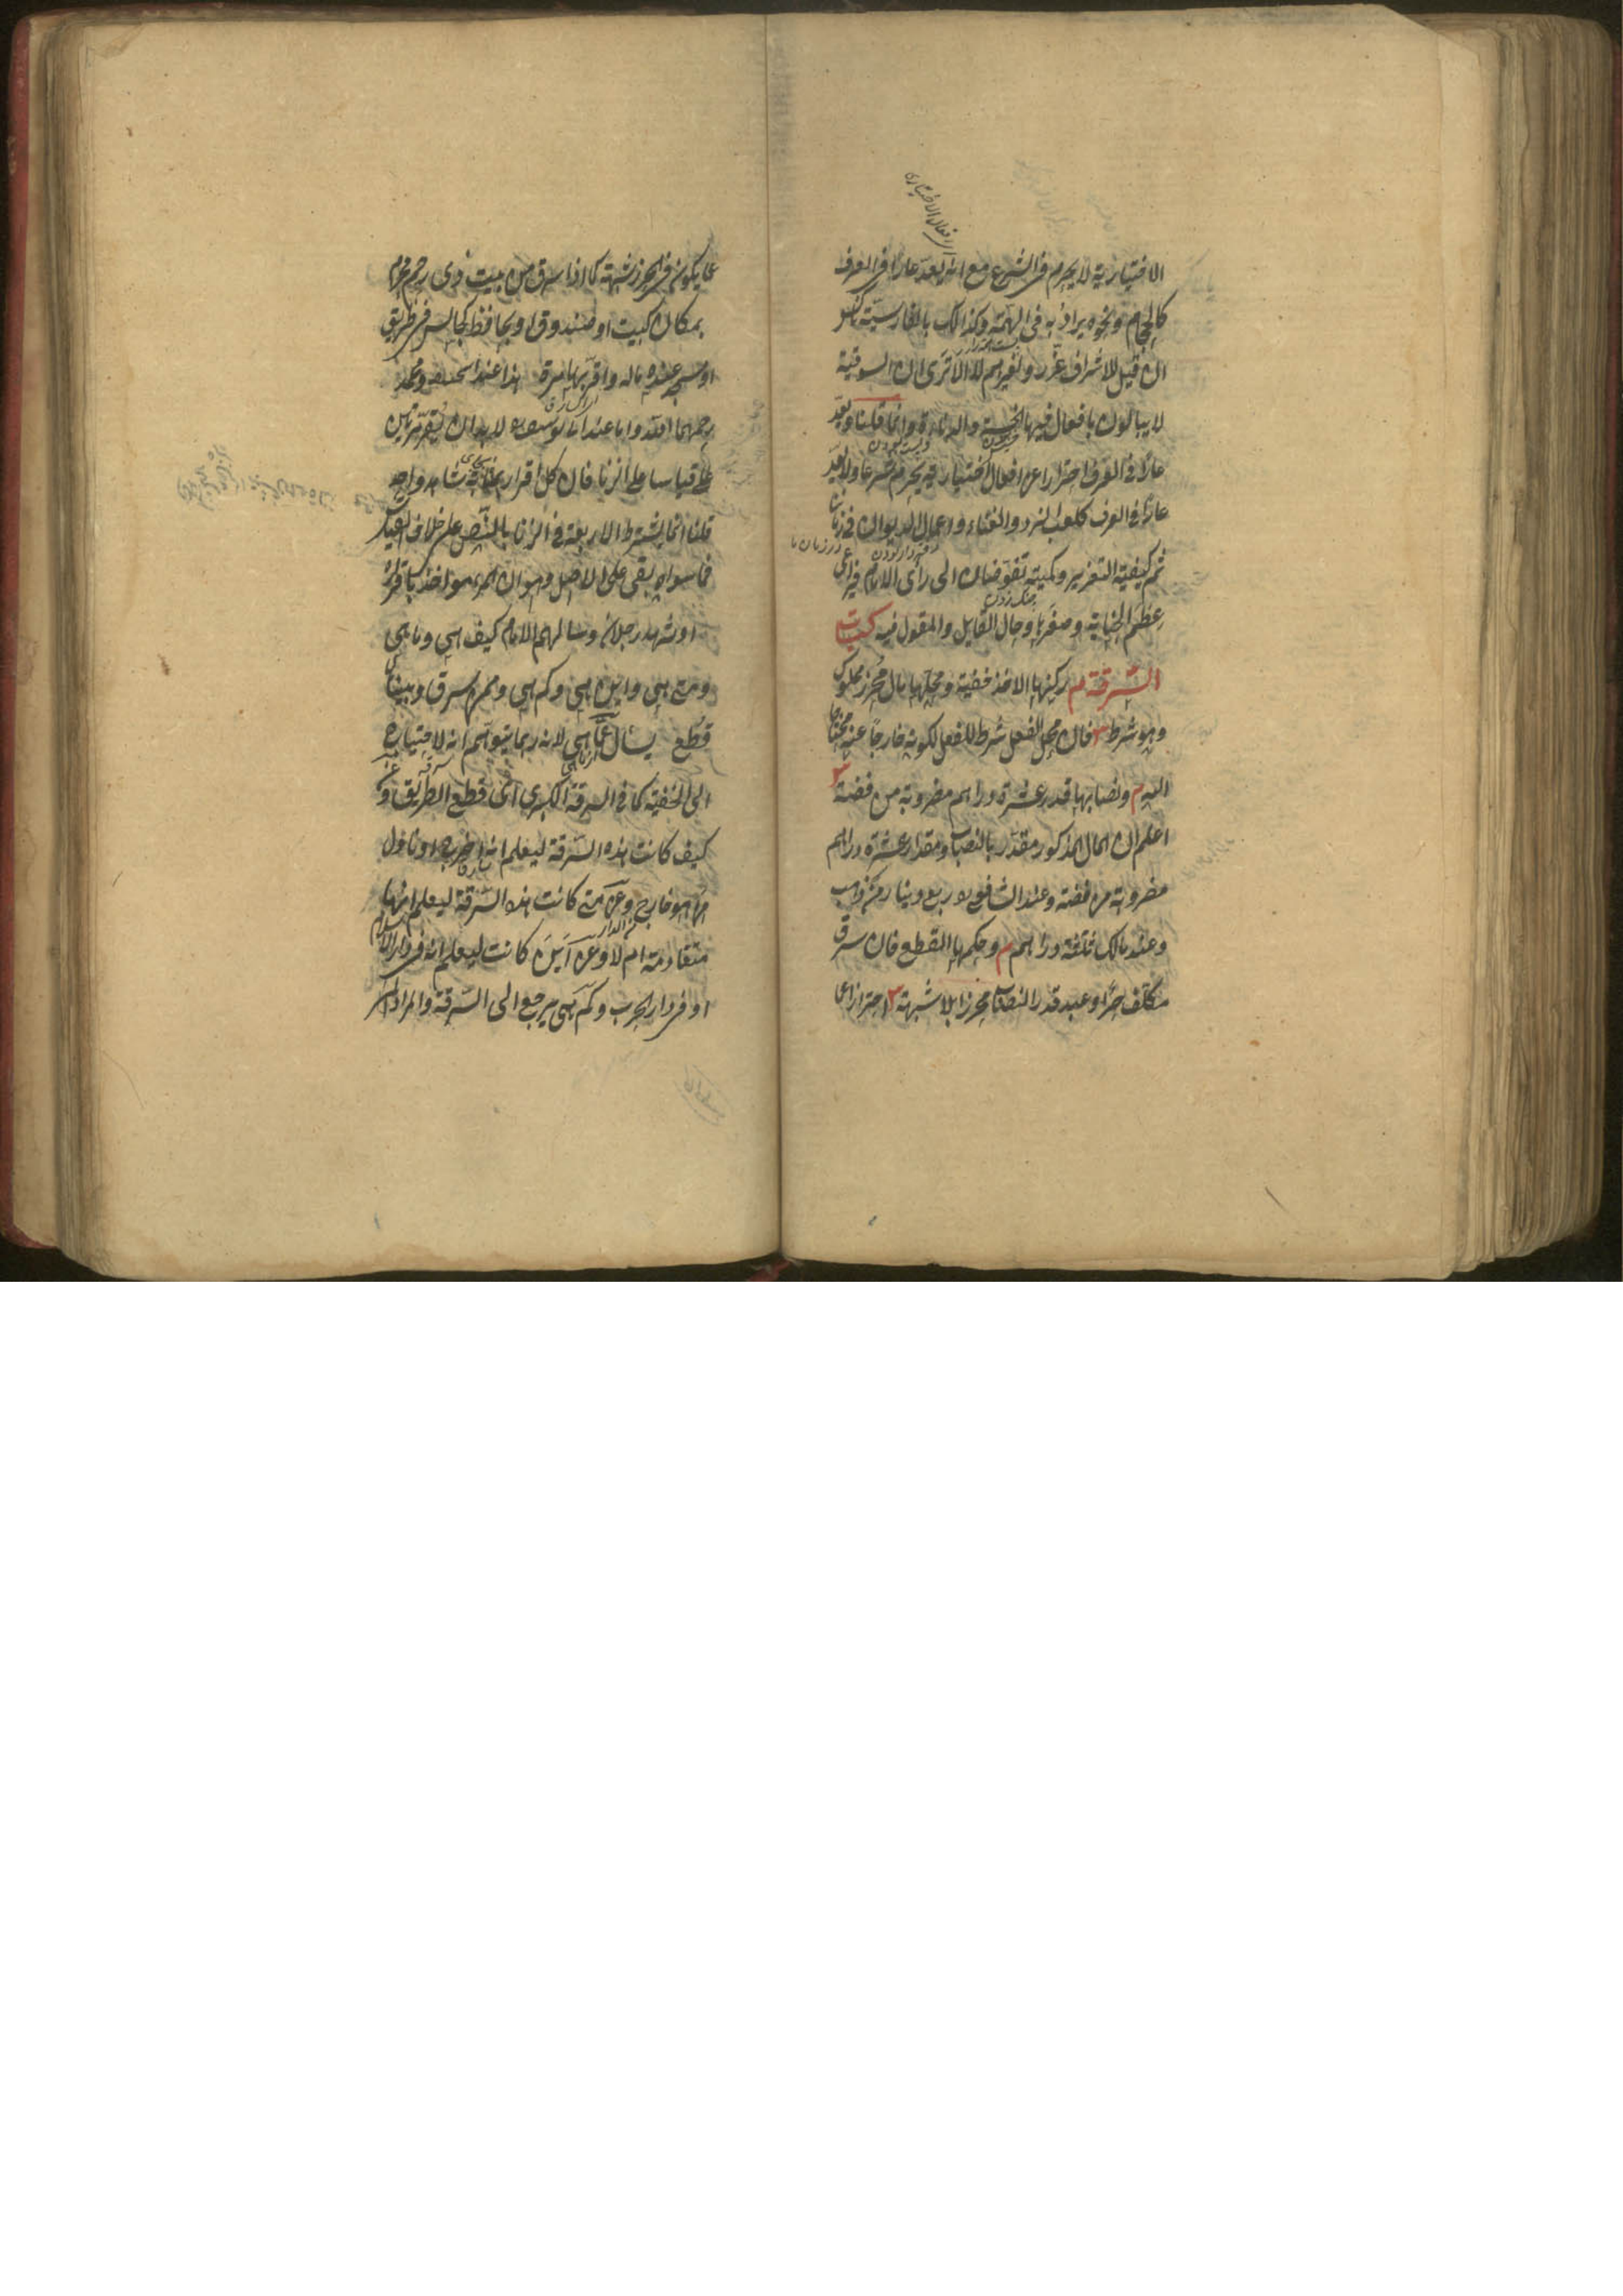 الاختيارية لا يحرم في الشرع مع انه يعد عارا في العرف
كالحجام ونحوه يراد به في الهمة وكذالك بالفارسية
ان قيل للاشراف عزر ولغيرهم لا الا ترى ان السوقية
لا يبالون بافعال فيها الخسة والدناءة وانما قلنا ويعد
عارا في العرف احترازا عن افعال اختيارية يحرم شرعا ولا يعد
عارا في العرف كلعب النرد والغناء واعمال الديوان في زماننا
ثم كيفية التعزير وكميته تفوضان الى رأى الامام فيراعى
عظم الجناية وصغرها وحال القايل والمقول فيه كتاب
السرقة م ركنها الاخذ خفية ومحلها مال محرز مملوك
وهو شرط فان محل الفعل شرط للفعل لكونه خارجا عنه محتاجا
اليه م ونصابها قدر عشرة دراهم مضروبة من فضة
اعلم ان المال المذكور مقدر بالنصاب ومقدار عشرة دراهم
مضروبة من فضة وعند الشافعي ربع دينار من ذهب
وعند مالك ثلثة دراهم م وحكمها القطع فان سرق
مكلف حر او عبد قدر النصاب محرزا بلا شبهة احترازا عما
الافعال الاختياري
عما يكون في الحرز شبهة كما اذا سرق من بيت ذى رحم محرم
بمكان كبيت او صندوق او بحافظ كجالس في طريق
او مسجد عنده ماله واقر بها مرة هذا عند ابي حنيفة ومحمد
رحمهما الله واما عند ابي يوسف لا بد ان يقر مرتين
على قياسا على الزنا فان كل اقرار بمثابة شاهد واحد
قلنا انما يشترط الاربعة في الزنا بالنص على خلاف القياس
فما سواه يبقى على الاصل وهو ان المرء مؤاخذ باقراره
او شهد رجلان وسالهم الامام كيف هي وما هي
ومتى هي واين هي وكم هي وممن سرق وبينا
قطع يسأل عما هي لانه ربما يتوهم انه لاختياره
الى الخفية كما في السرقة الكبرى اعنى قطع الطريق وعن
كيف كانت هذه السرقة ليعلم انه اخرج او ناول
من هو خارج وعن متى كانت هذه السرقة ليعلم انها
متقادمة ام لا وعن اين كانت ليعلم انه في دار الاسلام
او في دار الحرب وكم هي يرجع الى السرقة والمراد ان